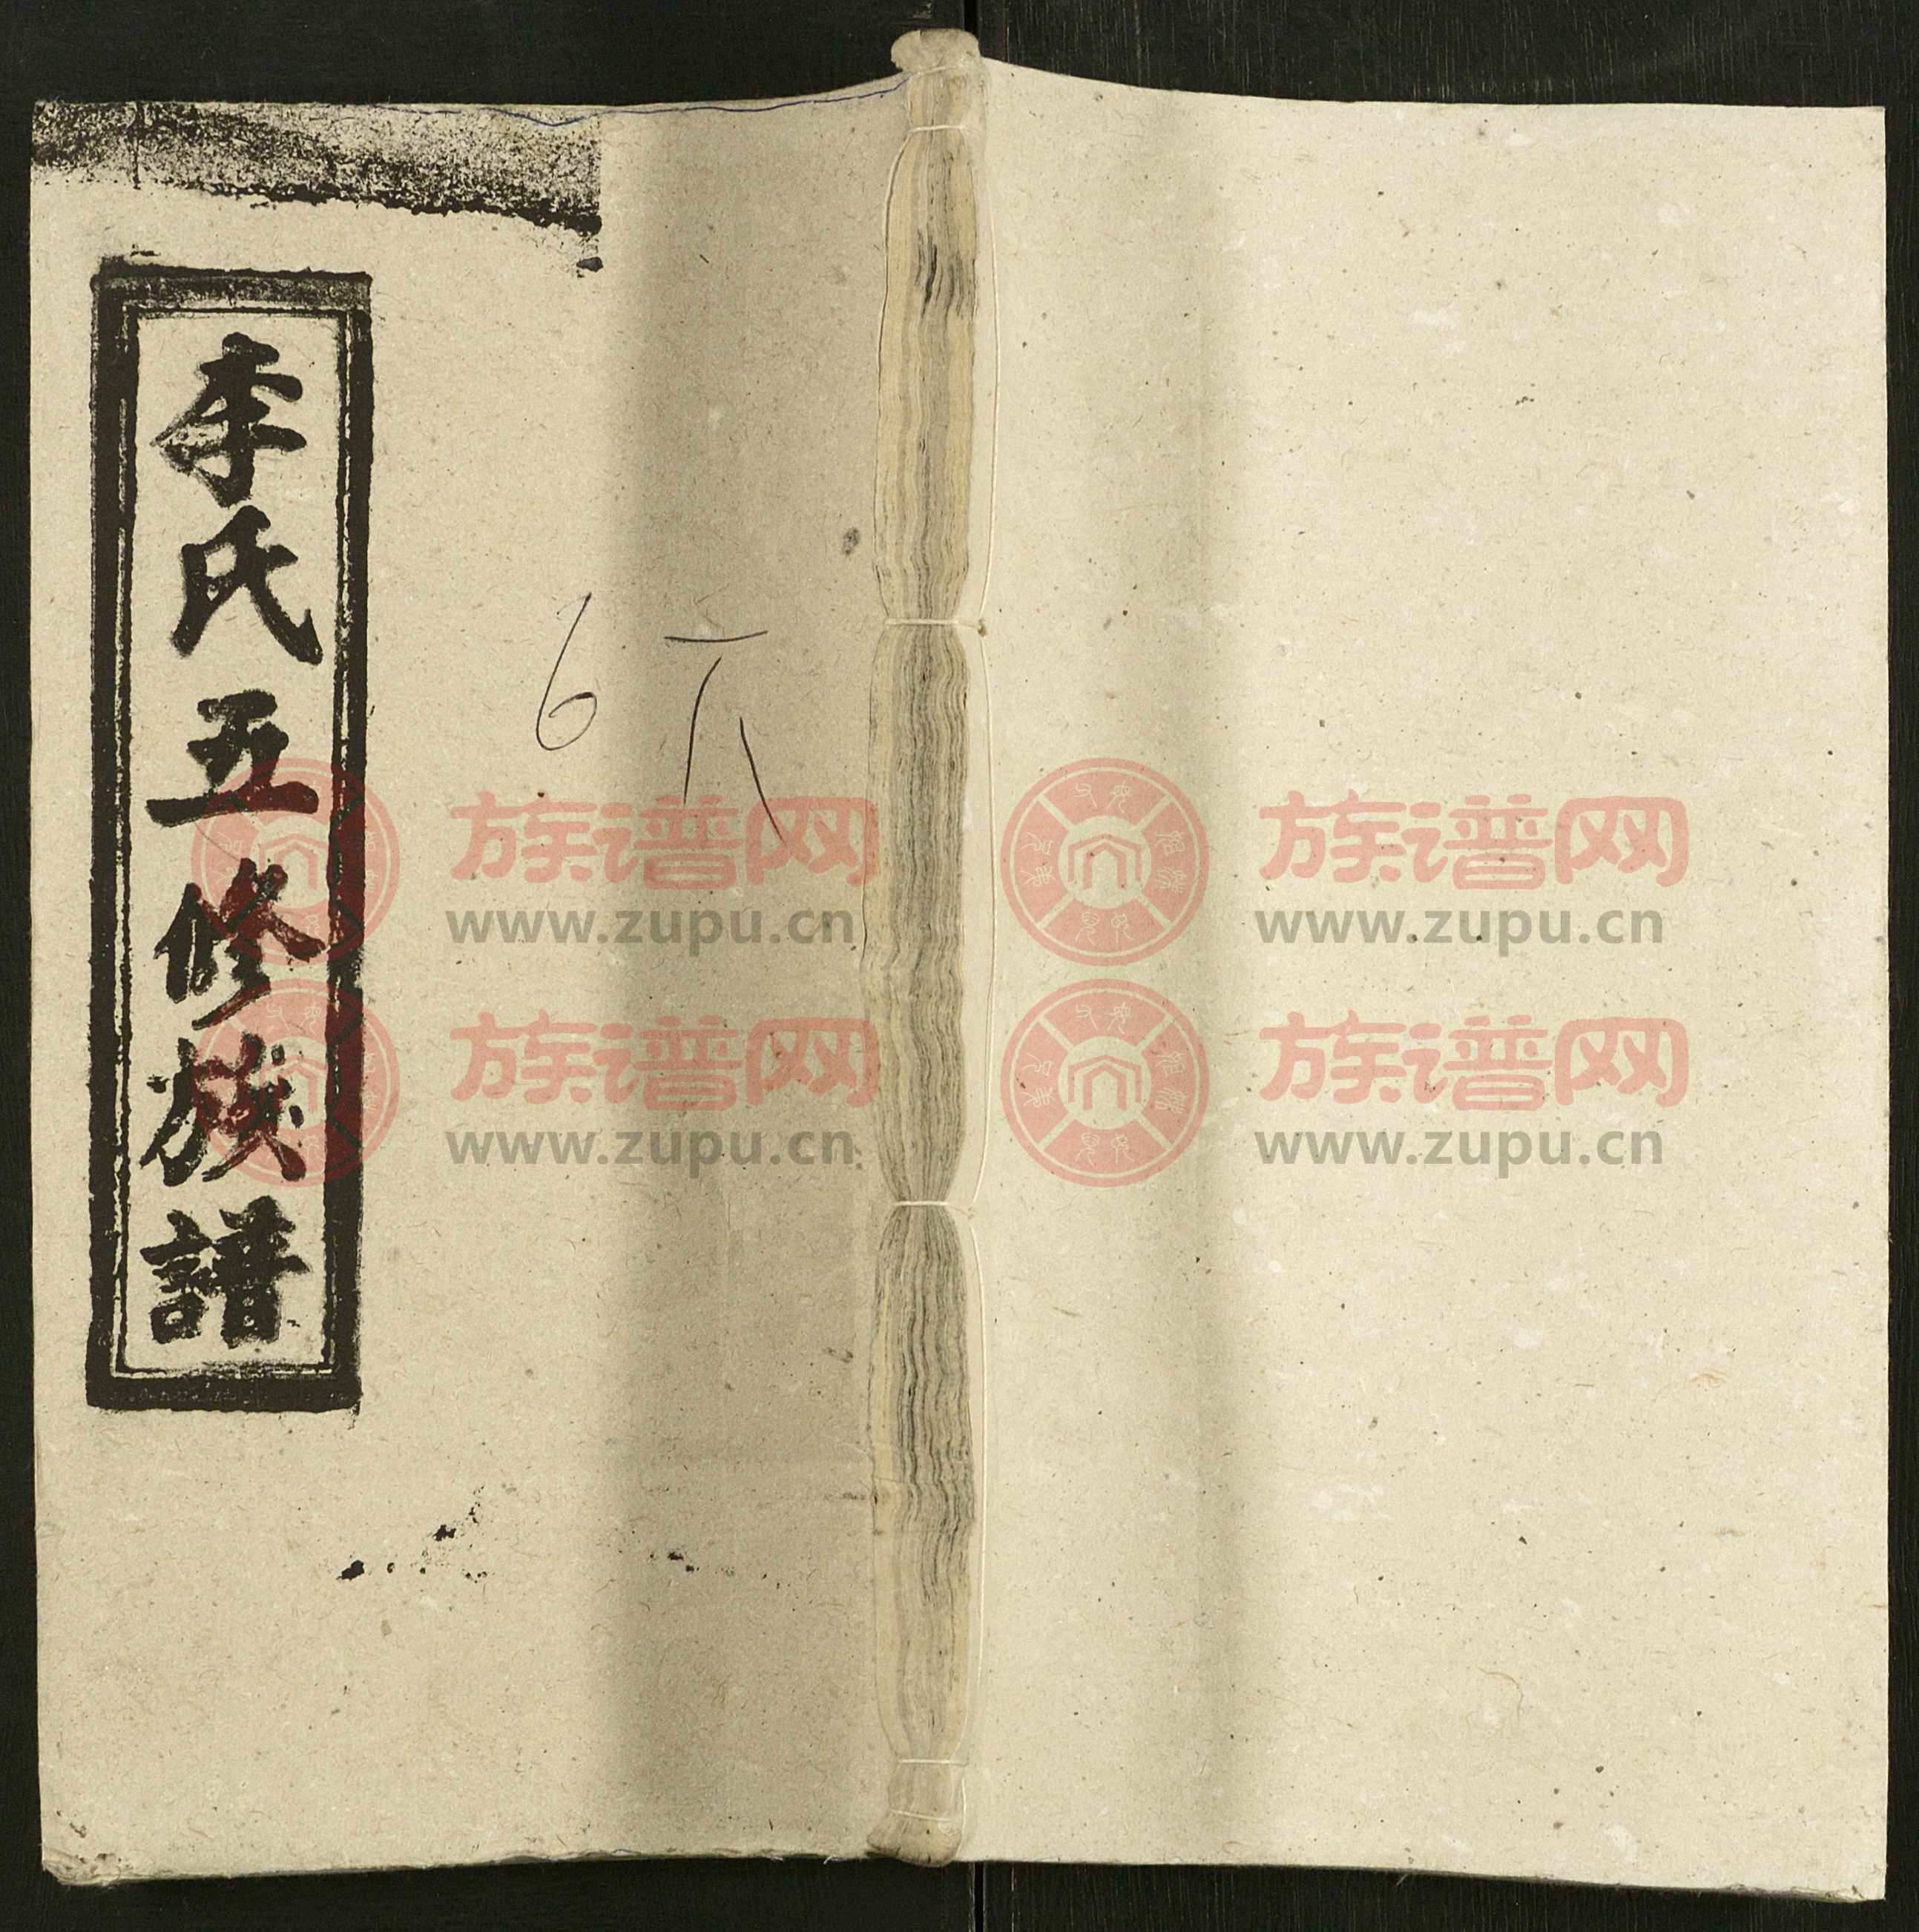 李氏五修族譜
6
六
族谱网
www.zupu.cn
族谱网
www.zupu.cn
族谱网
www.zupu.cn
族谱网
www.zupu.cn